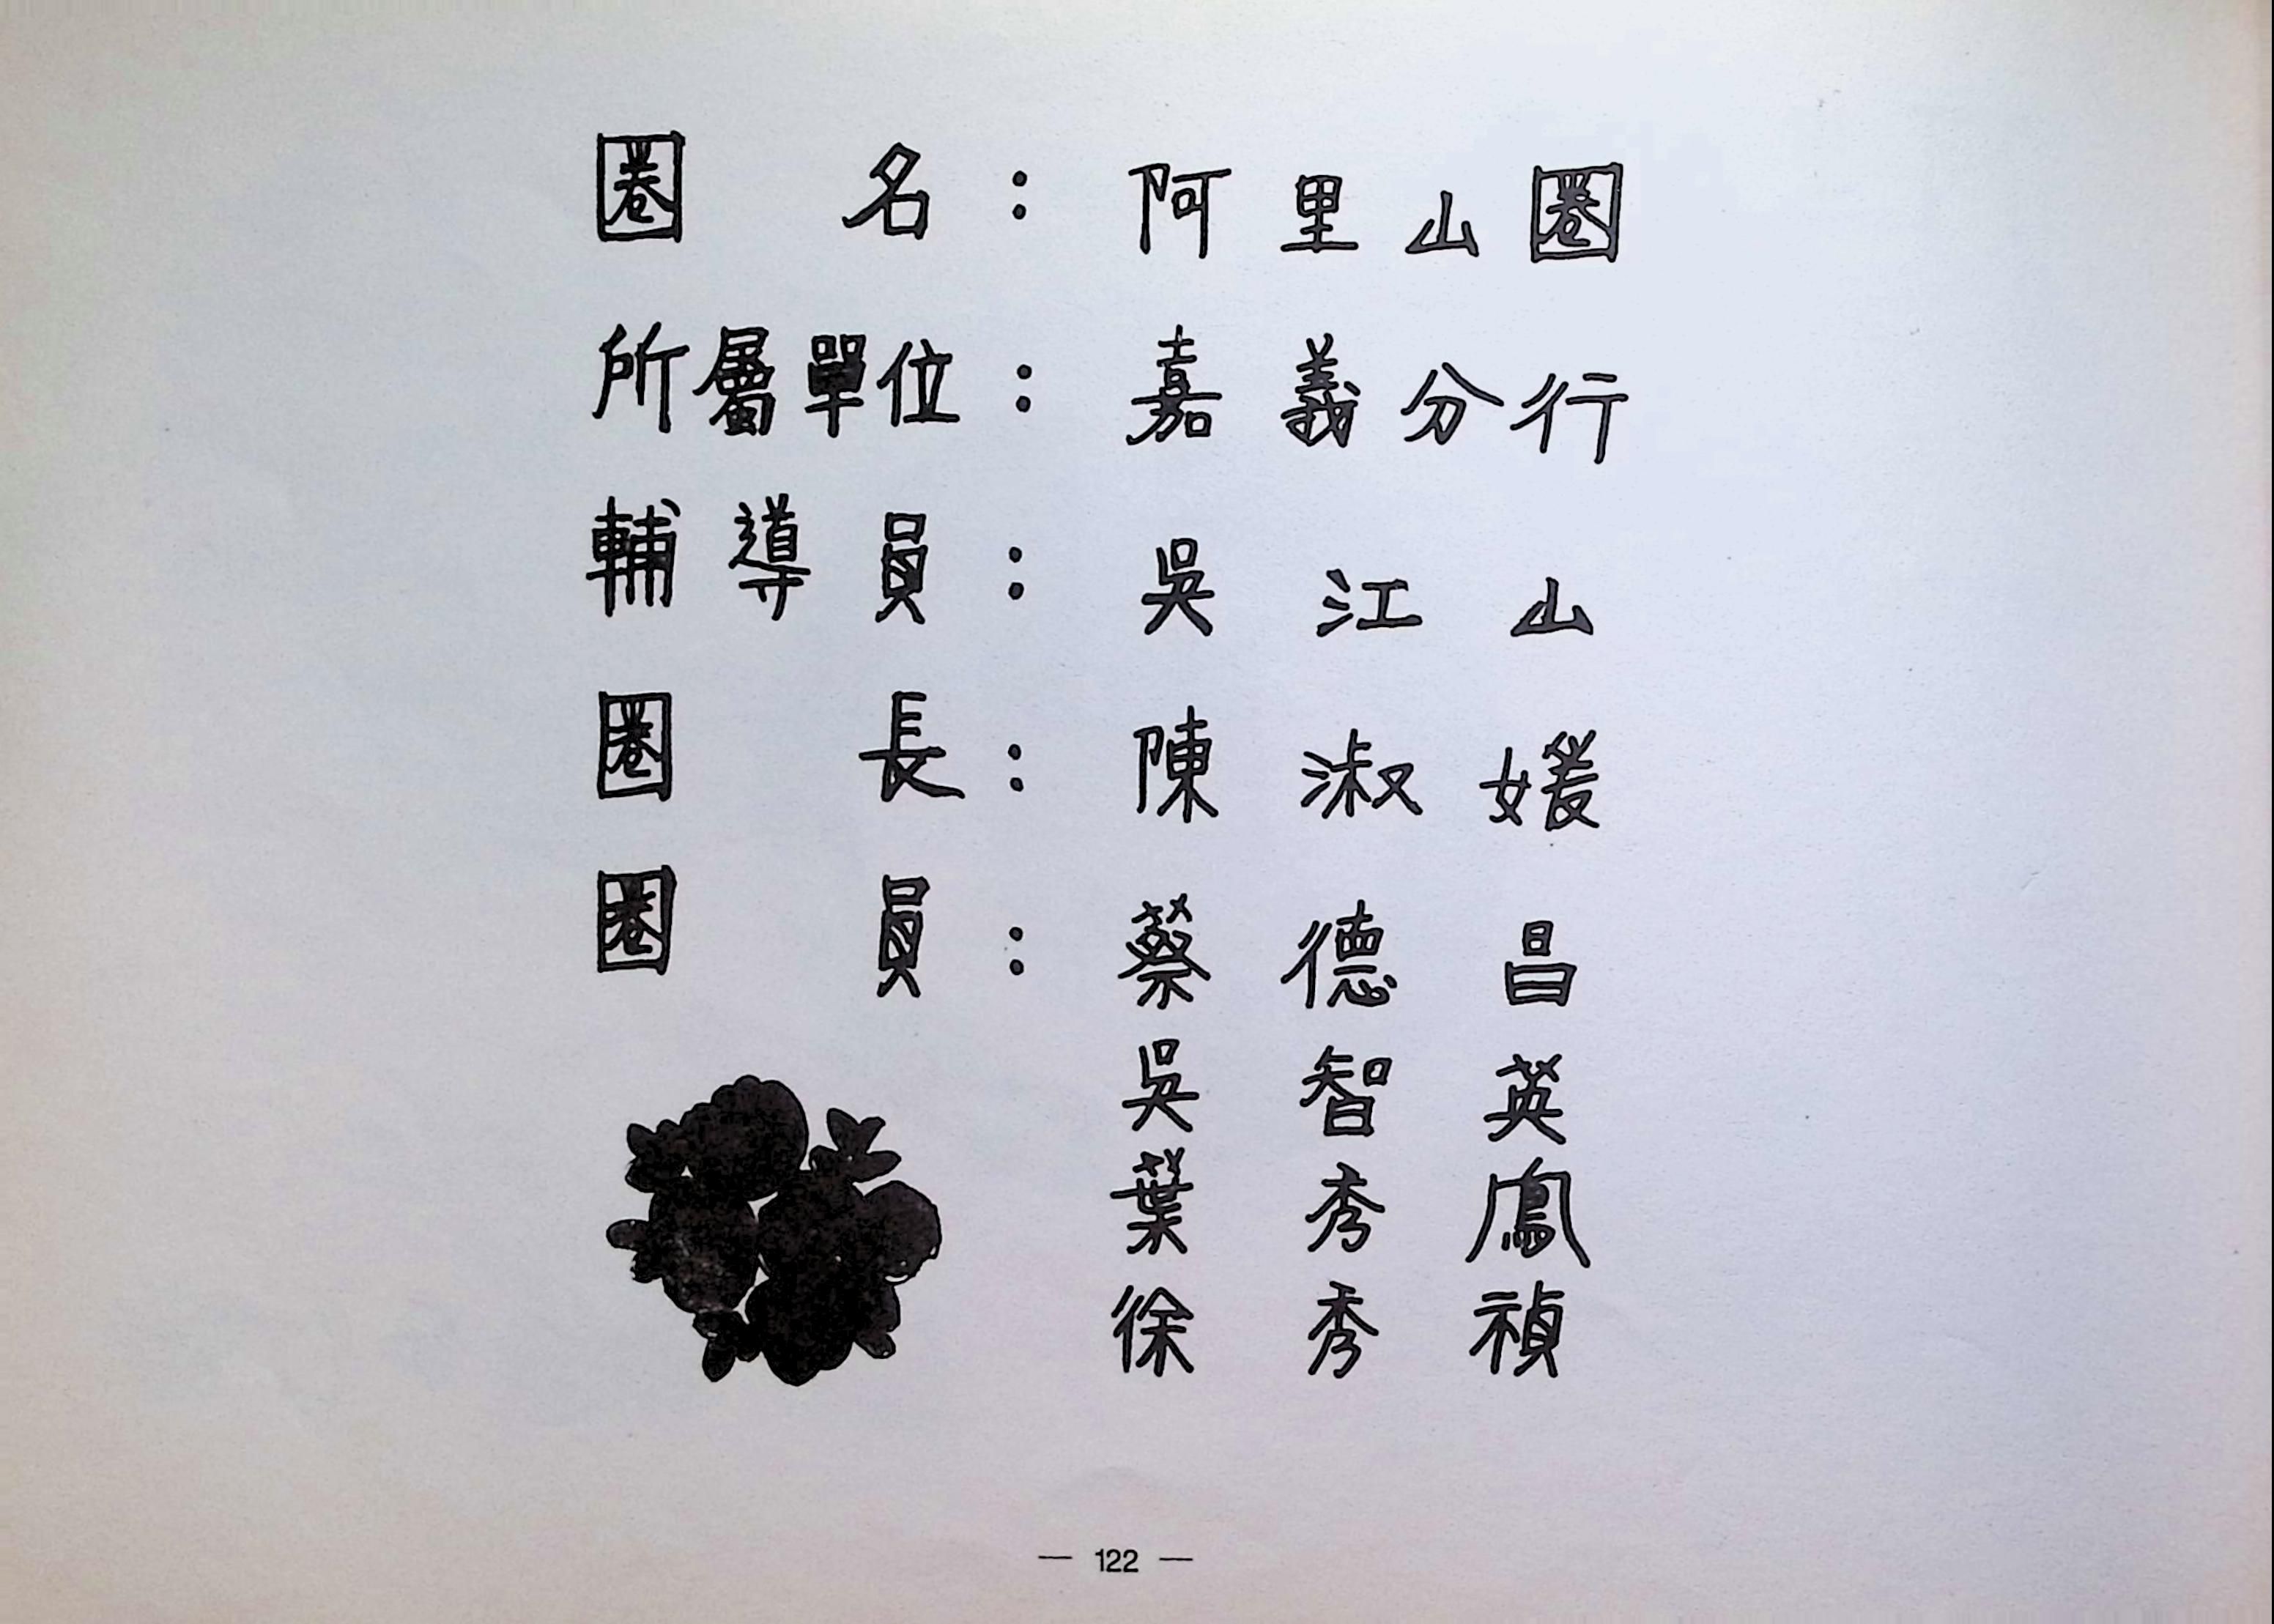 圈名：阿里山圈
所屬單位：嘉義分行
輔導員：吳江山
圈長：陳淑媛
圈員：蔡德昌
吳智英
葉秀鳳
徐秀禎
— 122 —